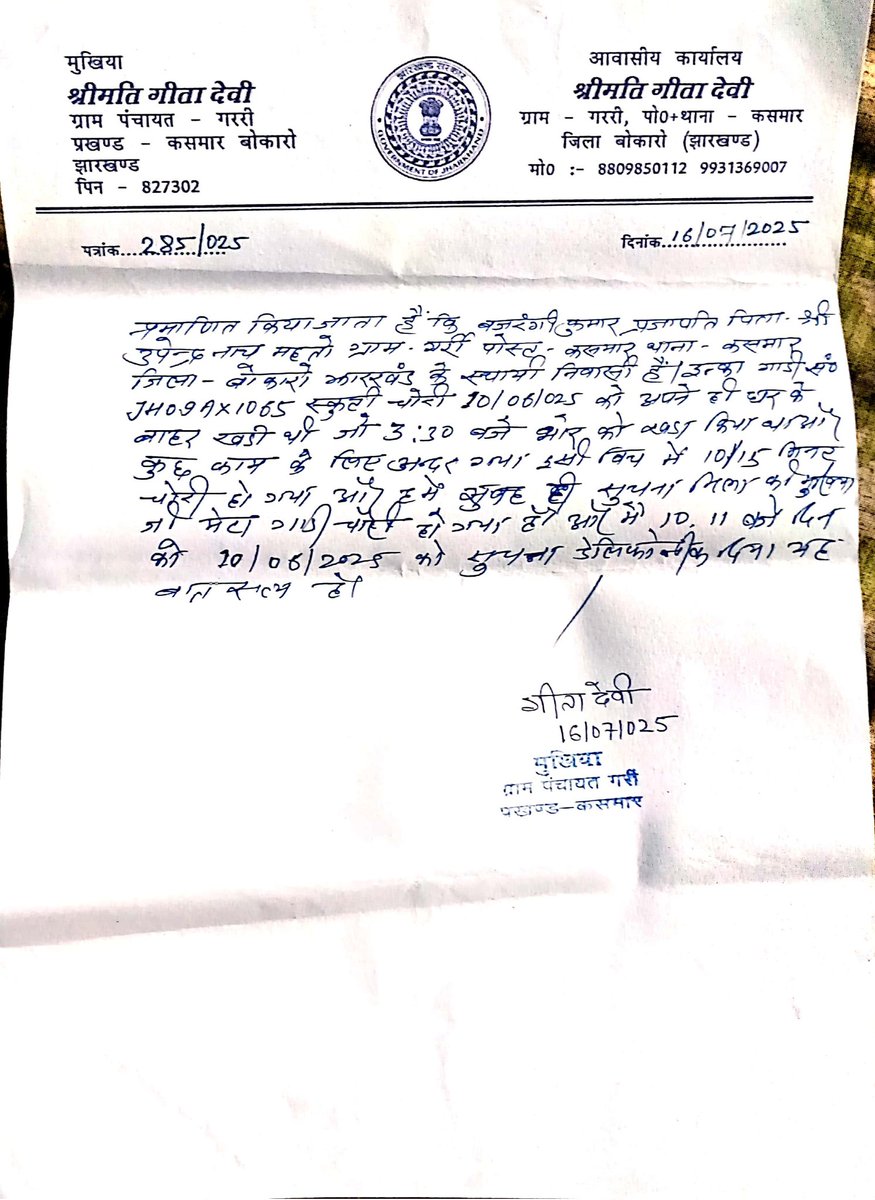 मुखिया
श्रीमति गीता देवी
ग्राम पंचायत - गररी
प्रखण्ड - कसमार बोकारो
झारखण्ड
पिन - 827302
झारखण्ड सरकार
GOVERNMENT OF JHARKHAND
आवासीय कार्यालय
श्रीमति गीता देवी
ग्राम - गररी, पो0+थाना - कसमार
जिला बोकारो (झारखण्ड)
मो0 :- 8809850112 9931369007
पत्रांक....285/025
दिनांक....16/07/2025
प्रमाणित किया जाता है कि बजरंगी कुमार प्रजापति पिता- श्री
उपेन्द्र नाथ महतो ग्राम- गर्री पोस्ट- कसमार थाना- कसमार
जिला- बोकारो झारखंड के स्थायी निवासी हैं। इनका गाडी सं०
JH09AX1065 स्कुटी चोरी 20/06/025 को अपने ही घर के
बाहर खडी थी जो 3:30 बजे भोर को खडा किया था और
कुछ काम के लिए अन्दर गया इसी विच में 10/15 मिनट
चोरी हो गया और हमें सुवह ही सुचना मिला की मुखिया
जी मेरा गाडी चोरी हो गया है और मै 10,11 बजे दिन
को 20/06/2025 को सुचना दिया यह
बात सत्य है।
गीता देवी
16/07/025
मुखिया
ग्राम पंचायत गर्री
प्रखण्ड-कसमार